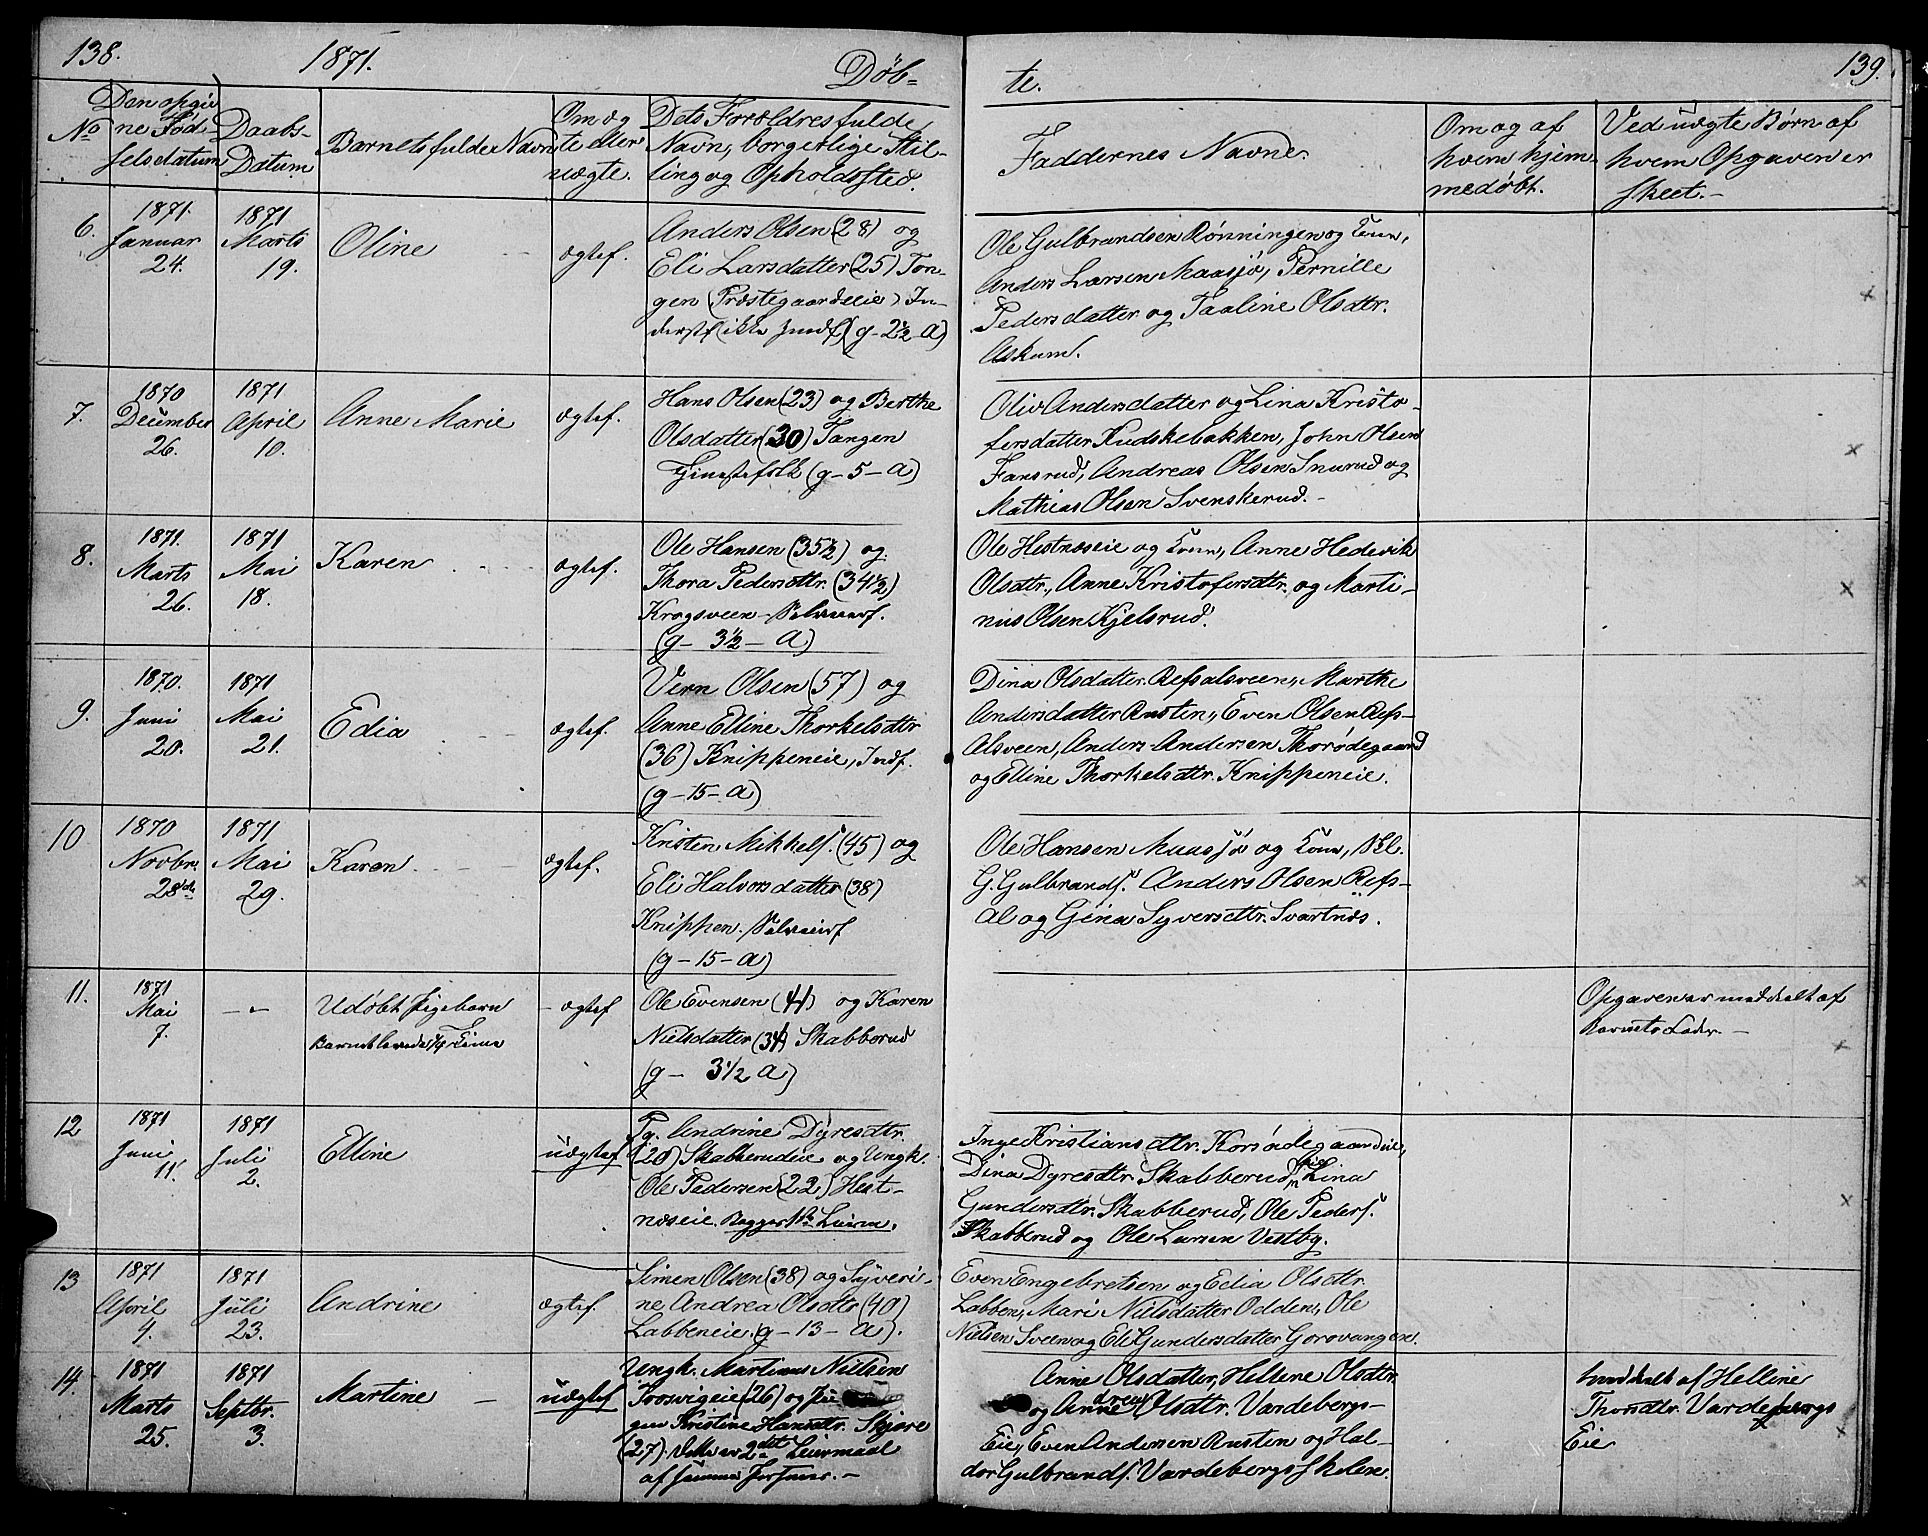 138.
1871.
Döb-
te.
139.
No
Den opgiv
ne Fød-
selsdatum
Daabs-
Datum
Barnets fulde Navn
Om æg
te eller
uægte.
Dets Forældres fulde
Navn, borgerlige Stil-
ling og Opholdssted.
Faddernes Navne.
Om og af
hvem hjem
medøbt.
Ved uægte Børn af
hvem Opgaven er
skeet.-
6.
1871.
Januar
24.
1871
Marts
19.
Oline
ægtef.
Anders Olsen (28) og
Eli Larsdatter (25) Ton-
gen (Præstegaardseie) In-
derst (ikke (g-2½-a)
Ole Gulbrandsen Rønningen og Kone,
Anders Larsen Maasjø, Pernille
Pedersdatter og Taaline Olsdtr.
Askum.
7.
1870
December
26.
1871
April
10.
Anne Marie
ægtef.
Hans Olsen (23) og Berthe
Olsdatter (30) Tangen
Tjenestefolk (g-5-a)
Oliv Andersdatter og Lina Kristo-
fersdatter Kudskebakken, John Olsen
Fansrud, Andreas Olsen Snurud og
Mathias Olsen Svenskerud.-
8.
1871.
Marts
26.
1871
Mai
18.
Karen
ægtef.
Ole Hansen (35½) og
Thora Pedersdtr. (34½)
Kragsveen Selveierf.
(g- 3½ - a)
Ole Hestnæseie og Kone, Anne Hedevik
Olsdtr., Anne Kristofersdtr. og Marti-
nus Olsen Kjelsrud.
9.
1870.
Juni
20.
1871
Mai
21.
Edia
ægtef.
Vern Olsen (57) og
Anne Elline Thorkelsdtr
(36) Knippeneie, Indf.
(g-15-a)
Dina Olsdatter Refsalsveen, Marthe
Andersdatter Rusten, Even Olsen Refs-
alsveen, Anders Andersen Thorødegaard
og Elline Thorkelsdtr. Knippeneie.
10
1870
Novbr.
28de
1871
Mai
29.
Karen
ægtef.
Kristen Mikkels. (45) og
Eli Halvorsdatter (38)
Knippen. Selveierf
(g-15-a)
Ole Hansen Maasjø og Kone,
G. Gulbrands. Anders Olsen Refs-
al og Gina Syversdtr. Svartnæs.
11.
1871
Mai
7.
- -
Udøbt Pigebarn
Barnet levede Time
- ægtef
Ole Evensen (41) og Karen
Nielsdatter (34) Skabberud
(g- 3½ a)
Opgaven er meddelt af
Barnets Fader. -
12
1871
Juni
11.
1871
Juli
2.
Elline
uægtef
Pg. Andrine Dyresdtr.
(20) Skabberudeie og Ungk.
Ole Pedersen (22) Hest-
næseie. Begges 1ste Leierm.
Inge Kristiansdtr. Korsødegaardeie,
Dina Dyresdtr. Skabberudeie, Lina
Gundersdtr. Skabberud, Ole Peders.
Skabberud og Ole Larsen Vestby.
13
1871
April
4.
1871
Juli
23.
Andrine
ægtef.
Simen Olsen (38) og Syveri-
ne Andrea Olsdtr (40)
Labbeneie. (g-13-a).
Even Engebretsen og Edia Olsdtr.
Labben, Mari Nielsdatter Odden, Ole
Nielsen Sveen og Eli Gundersdatter Gorovangen.
14.
1871
Marts
25.
1871
Septbr.
3.
Martine
uægtef
Ungk. Martinus Nielsen
Torsvigeie (26) og Pi
gen Kristine Hansdtr. Skjøre
(27). Dette er 2det Leiermaal
af
Anne Olsdatter, Hellene Olsdtr
og Andrea Olsdtr. Vardebergs-
Eie, Even Andersen Rusten og Hal-
dor Gulbrands. Vardebergs
meddelt af Helline
Thorsdtr. Vardebergs
Eie